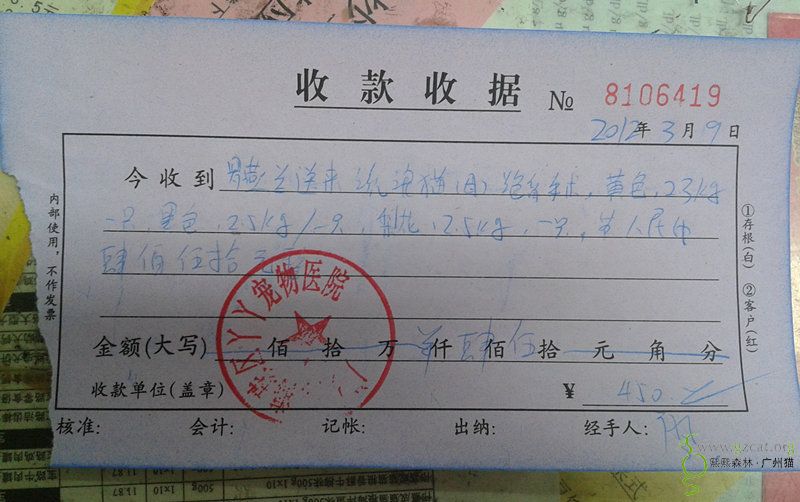 收款收据 № 8106419
2012年3月9日
今收到 送来流浪猫(母)绝育手术,黄色,2.3kg
一只,黑色,2.5kg/一只,梨花,2.5kg,一只,共人民币
肆佰伍拾元
宠物医院
金额(大写) 佰 拾 万 仟 肆 佰 伍 拾 元 角 分
收款单位(盖章) ¥ 450
核准: 会计: 记帐: 出纳: 经手人:
内部使用,不作发票
①存根(白) ②客户(红)
www.gzcat.org
熙熙森林·广州猫